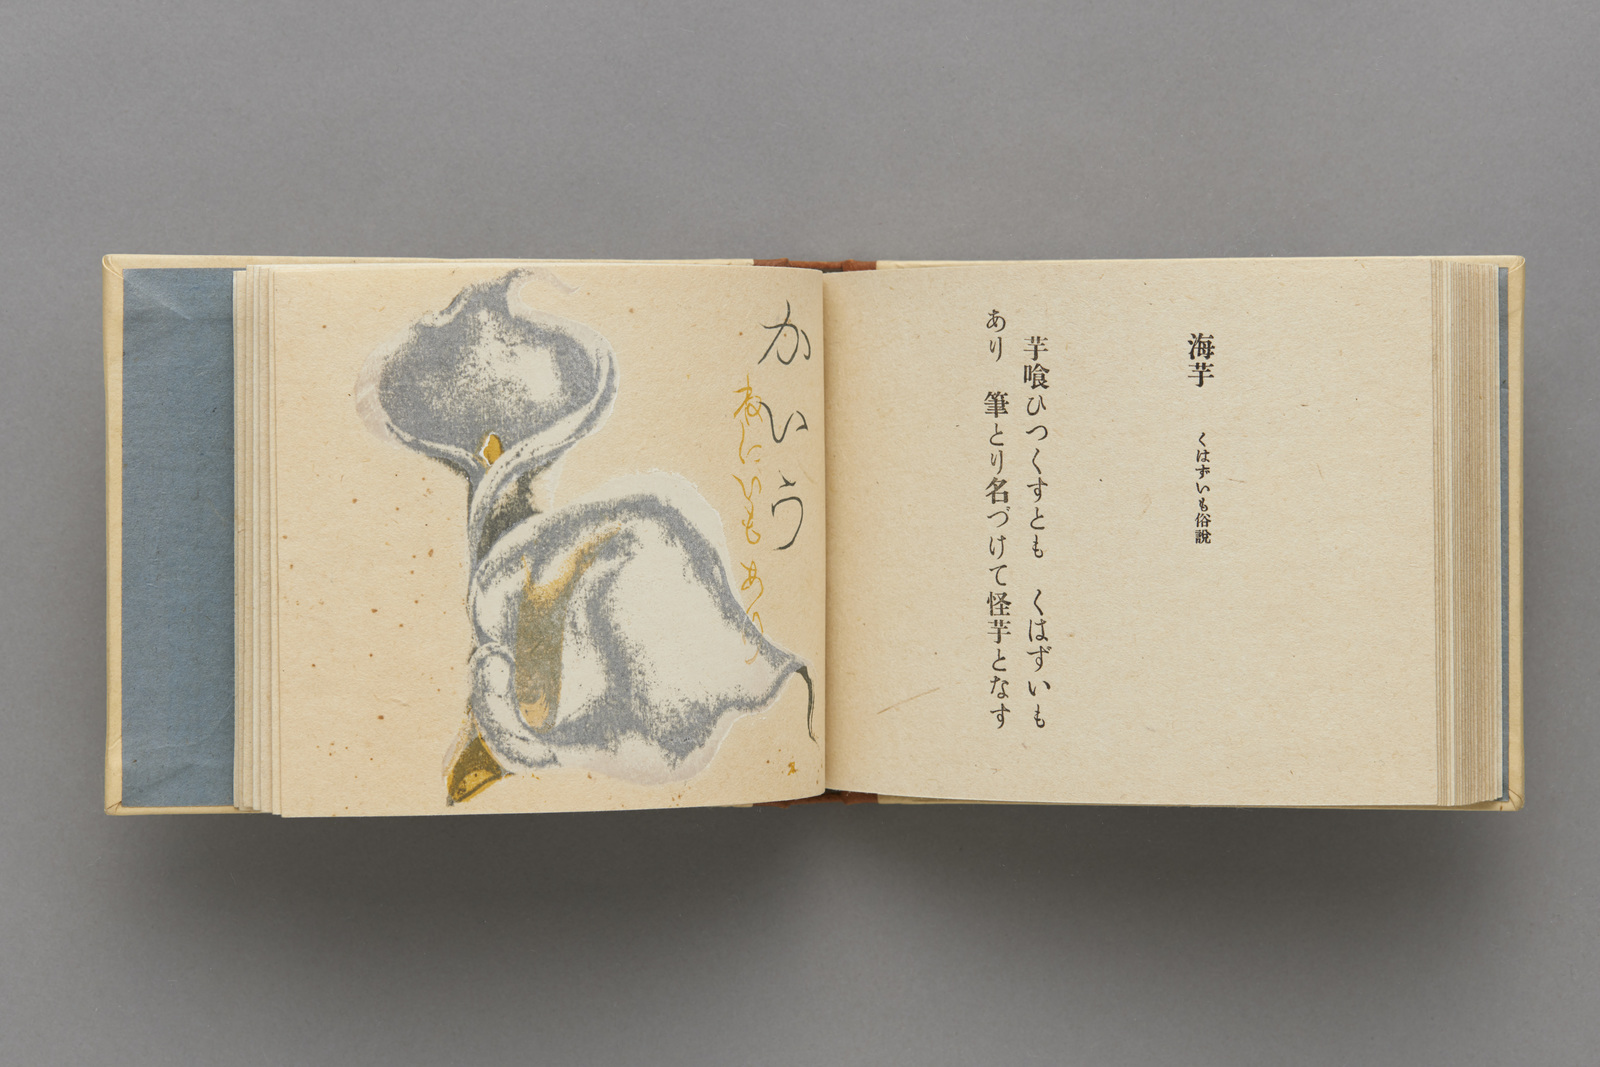 海芋　くはずいも俗說
芋喰ひつくすとも　くはずいも
あり　筆とり名づけて怪芋となす
かいう